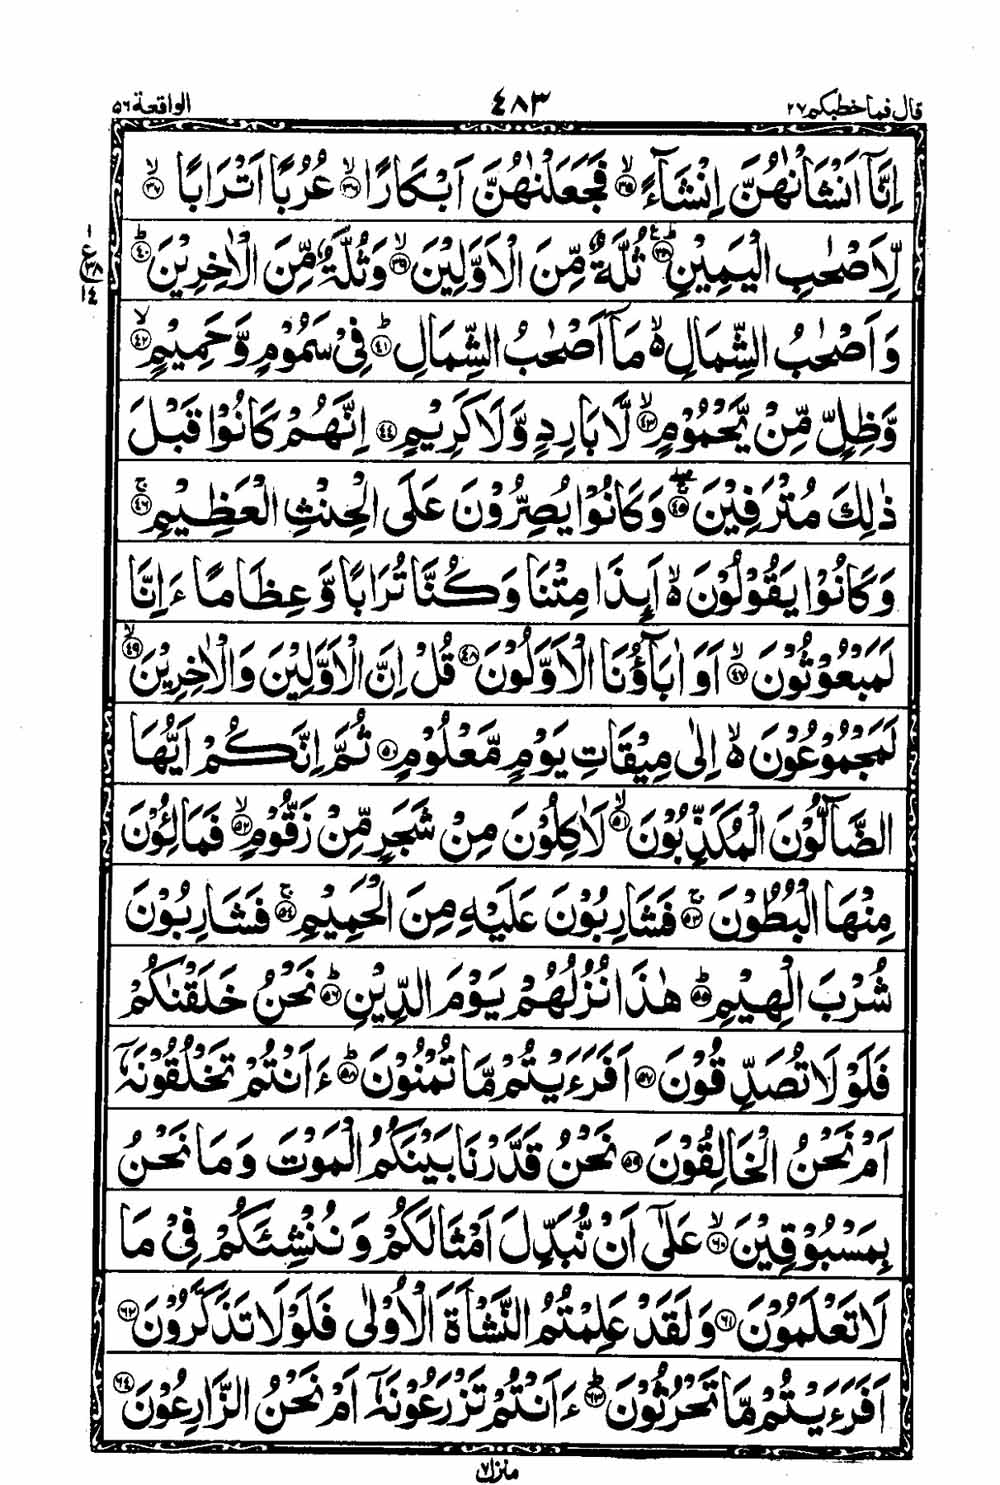 قال فماخطبكم ٢٧ ٤٨٣ الواقعة ٥٦
اِنَّاۤ اَنْشَاْنٰهُنَّ اِنْشَآءً ۙ‏﴿۳۵﴾ فَجَعَلْنٰهُنَّ اَبْكَارًا ۙ‏﴿۳۶﴾ عُرُبًا اَتْرَابًا ۙ‏﴿۳۷﴾
لِّاَصْحٰبِ الْيَمِيْنِ ؕ‏﴿۳۸﴾ ثُلَّةٌ مِّنَ الْاَوَّلِيْنَ ۙ‏﴿۳۹﴾ وَثُلَّةٌ مِّنَ الْاٰخِرِيْنَ ؕ‏﴿۴۰﴾
وَاَصْحٰبُ الشِّمَالِ ۙ مَاۤ اَصْحٰبُ الشِّمَالِ ؕ‏﴿۴۱﴾ فِىْ سَمُوْمٍ وَّحَمِيْمٍ ۙ‏﴿۴۲﴾
وَّظِلٍّ مِّنْ يَّحْمُوْمٍ ۙ‏﴿۴۳﴾ لَّا بَارِدٍ وَّلَا كَرِيْمٍ ‏﴿۴۴﴾ اِنَّهُمْ كَانُوْا قَبْلَ
ذٰلِكَ مُتْرَفِيْنَ ۚۖ‏﴿۴۵﴾ وَكَانُوْا يُصِرُّوْنَ عَلَى الْحِنْثِ الْعَظِيْمِ ۚ‏﴿۴۶﴾
وَكَانُوْا يَقُوْلُوْنَ ۙ اَىِٕذَا مِتْنَا وَكُنَّا تُرَابًا وَّعِظَامًا ءَاِنَّا
لَمَبْعُوْثُوْنَ ۙ‏﴿۴۷﴾ اَوَاٰبَآؤُنَا الْاَوَّلُوْنَ ‏﴿۴۸﴾ قُلْ اِنَّ الْاَوَّلِيْنَ وَالْاٰخِرِيْنَ ۙ‏﴿۴۹﴾
لَمَجْمُوْعُوْنَ ۙ اِلٰى مِيْقَاتِ يَوْمٍ مَّعْلُوْمٍ ‏﴿۵۰﴾ ثُمَّ اِنَّكُمْ اَيُّهَا
الضَّآلُّوْنَ الْمُكَذِّبُوْنَ ۙ‏﴿۵۱﴾ لَاٰكِلُوْنَ مِنْ شَجَرٍ مِّنْ زَقُّوْمٍ ۙ‏﴿۵۲﴾ فَمَالِئُوْنَ
مِنْهَا الْبُطُوْنَ ۚ‏﴿۵۳﴾ فَشَارِبُوْنَ عَلَيْهِ مِنَ الْحَمِيْمِ ۚ‏﴿۵۴﴾ فَشَارِبُوْنَ
شُرْبَ الْهِيْمِ ؕ‏﴿۵۵﴾ هٰذَا نُزُلُهُمْ يَوْمَ الدِّيْنِ ؕ‏﴿۵۶﴾ نَحْنُ خَلَقْنٰكُمْ
فَلَوْلَا تُصَدِّقُوْنَ ‏﴿۵۷﴾ اَفَرَءَيْتُمْ مَّا تُمْنُوْنَ ؕ‏﴿۵۸﴾ ءَاَنْتُمْ تَخْلُقُوْنَهٗۤ
اَمْ نَحْنُ الْخَالِقُوْنَ ‏﴿۵۹﴾ نَحْنُ قَدَّرْنَا بَيْنَكُمُ الْمَوْتَ وَمَا نَحْنُ
بِمَسْبُوْقِيْنَ ۙ‏﴿۶۰﴾ عَلٰٓى اَنْ نُّبَدِّلَ اَمْثَالَكُمْ وَنُنْشِئَكُمْ فِىْ مَا
لَا تَعْلَمُوْنَ ‏﴿۶۱﴾ وَلَقَدْ عَلِمْتُمُ النَّشْاَةَ الْاُوْلٰى فَلَوْلَا تَذَكَّرُوْنَ ‏﴿۶۲﴾
اَفَرَءَيْتُمْ مَّا تَحْرُثُوْنَ ؕ‏﴿۶۳﴾ ءَاَنْتُمْ تَزْرَعُوْنَهٗۤ اَمْ نَحْنُ الزَّارِعُوْنَ ‏﴿۶۴﴾
١
ع
٣٨
١٤
منزل ٧